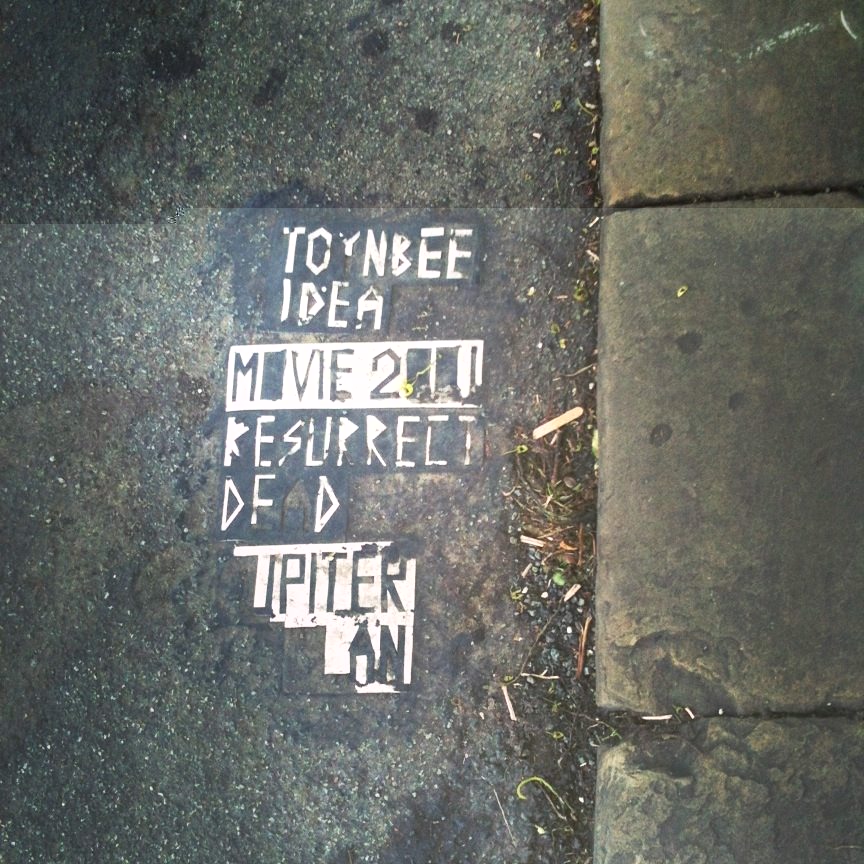 TOYNBEE
IDEA
MOVIE 2001
RESURRECT
DEAD
UPITER
ON